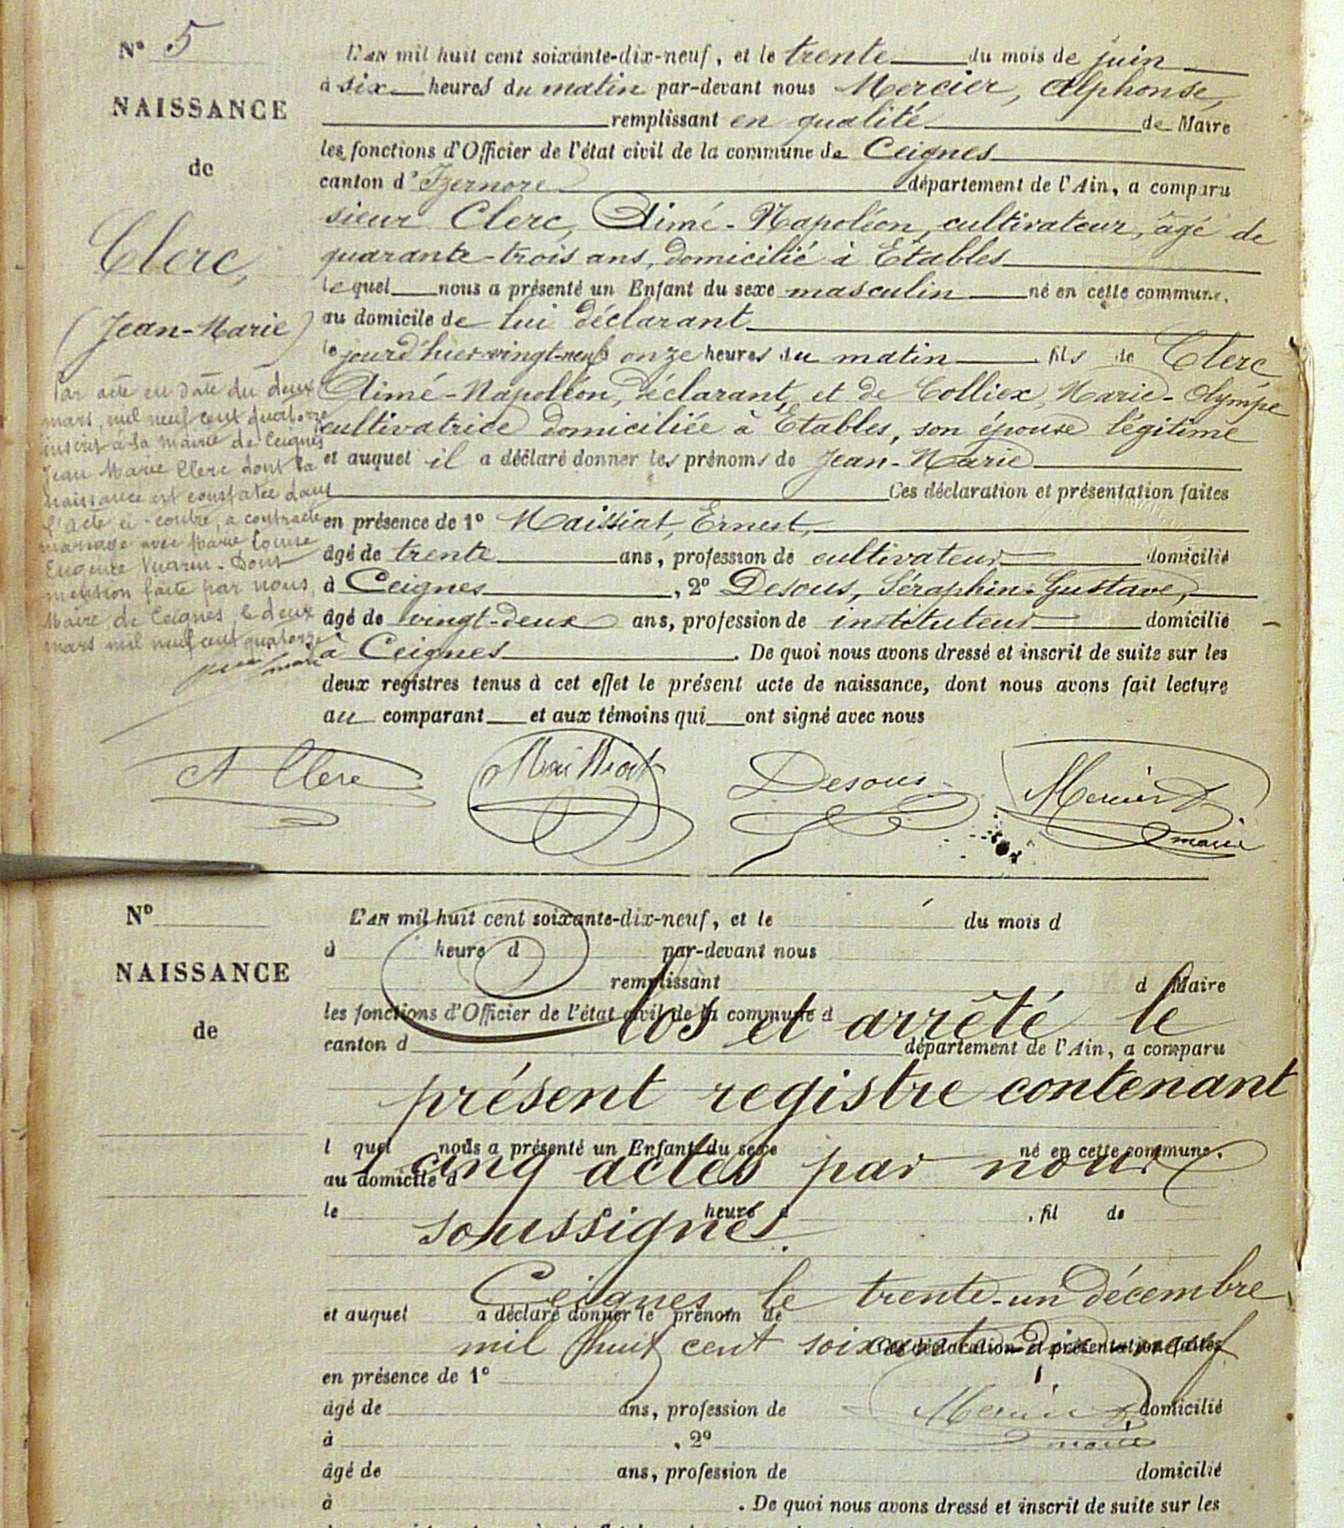 N° 5
NAISSANCE
de
Clerc,
(Jean-Marie)
Par acte en date du deux
mars mil neuf cent quatorze
inscrit à la mairie de Ceignes
Jean Marie Clerc dont la
naissance est constatée dans
l'acte ci-contre, a contracté
mariage avec Marie Louise
Eugénie Vuarin. Dont
mention faite par nous,
Maire de Ceignes, le deux
mars mil neuf cent quatorze
L'AN mil huit cent soixante-dix-neuf, et le trente du mois de juin
à six heures du matin par-devant nous Mercier, Alphonse,
remplissant en qualité de Maire
les fonctions d'Officier de l'état civil de la commune de Ceignes
canton d'Izernore département de l'Ain, a comparu
sieur Clerc, Aimé-Napoléon, cultivateur, âgé de
quarante-trois ans, domicilié à Étables
lequel nous a présenté un Enfant du sexe masculin né en cette commune,
au domicile de lui déclarant
le jourd'hier vingt-neuf onze heures du matin fils de Clerc
Aimé-Napoléon, déclarant, et de Colliex, Marie-Olympe
cultivatrice domiciliée à Étables, son épouse légitime
et auquel il a déclaré donner les prénoms de Jean-Marie
Ces déclaration et présentation faites
en présence de 1° Maissiat, Ernest,
âgé de trente ans, profession de cultivateur domicilié
à Ceignes, 2° Desous, Séraphin-Gustave,
âgé de vingt-deux ans, profession de instituteur domicilié
à Ceignes. De quoi nous avons dressé et inscrit de suite sur les
deux registres tenus à cet effet le présent acte de naissance, dont nous avons fait lecture
au comparant et aux témoins qui ont signé avec nous
A Clerc Maissiat Desous Mercier A
maire
N°
NAISSANCE
de
L'AN mil huit cent soixante-dix-neuf, et le du mois d
à heure d par-devant nous
remplissant d Maire
les fonctions d'Officier de l'état civil de la commune d
Clos et arrêté le
canton d département de l'Ain, a comparu
présent registre contenant
l quel nous a présenté un Enfant du sexe né en cette commune,
cinq actes par nous
au domicile d
le heure d , fil de
soussigné.
Ceignes le trente-un décembre
et auquel a déclaré donner le prénom de
mil huit cent soixante-dix-neuf
Ces déclaration et présentation faites
en présence de 1°
âgé de ans, profession de domicilié
Mercier A
à , 2°
maire
âgé de ans, profession de domicilié
à . De quoi nous avons dressé et inscrit de suite sur les